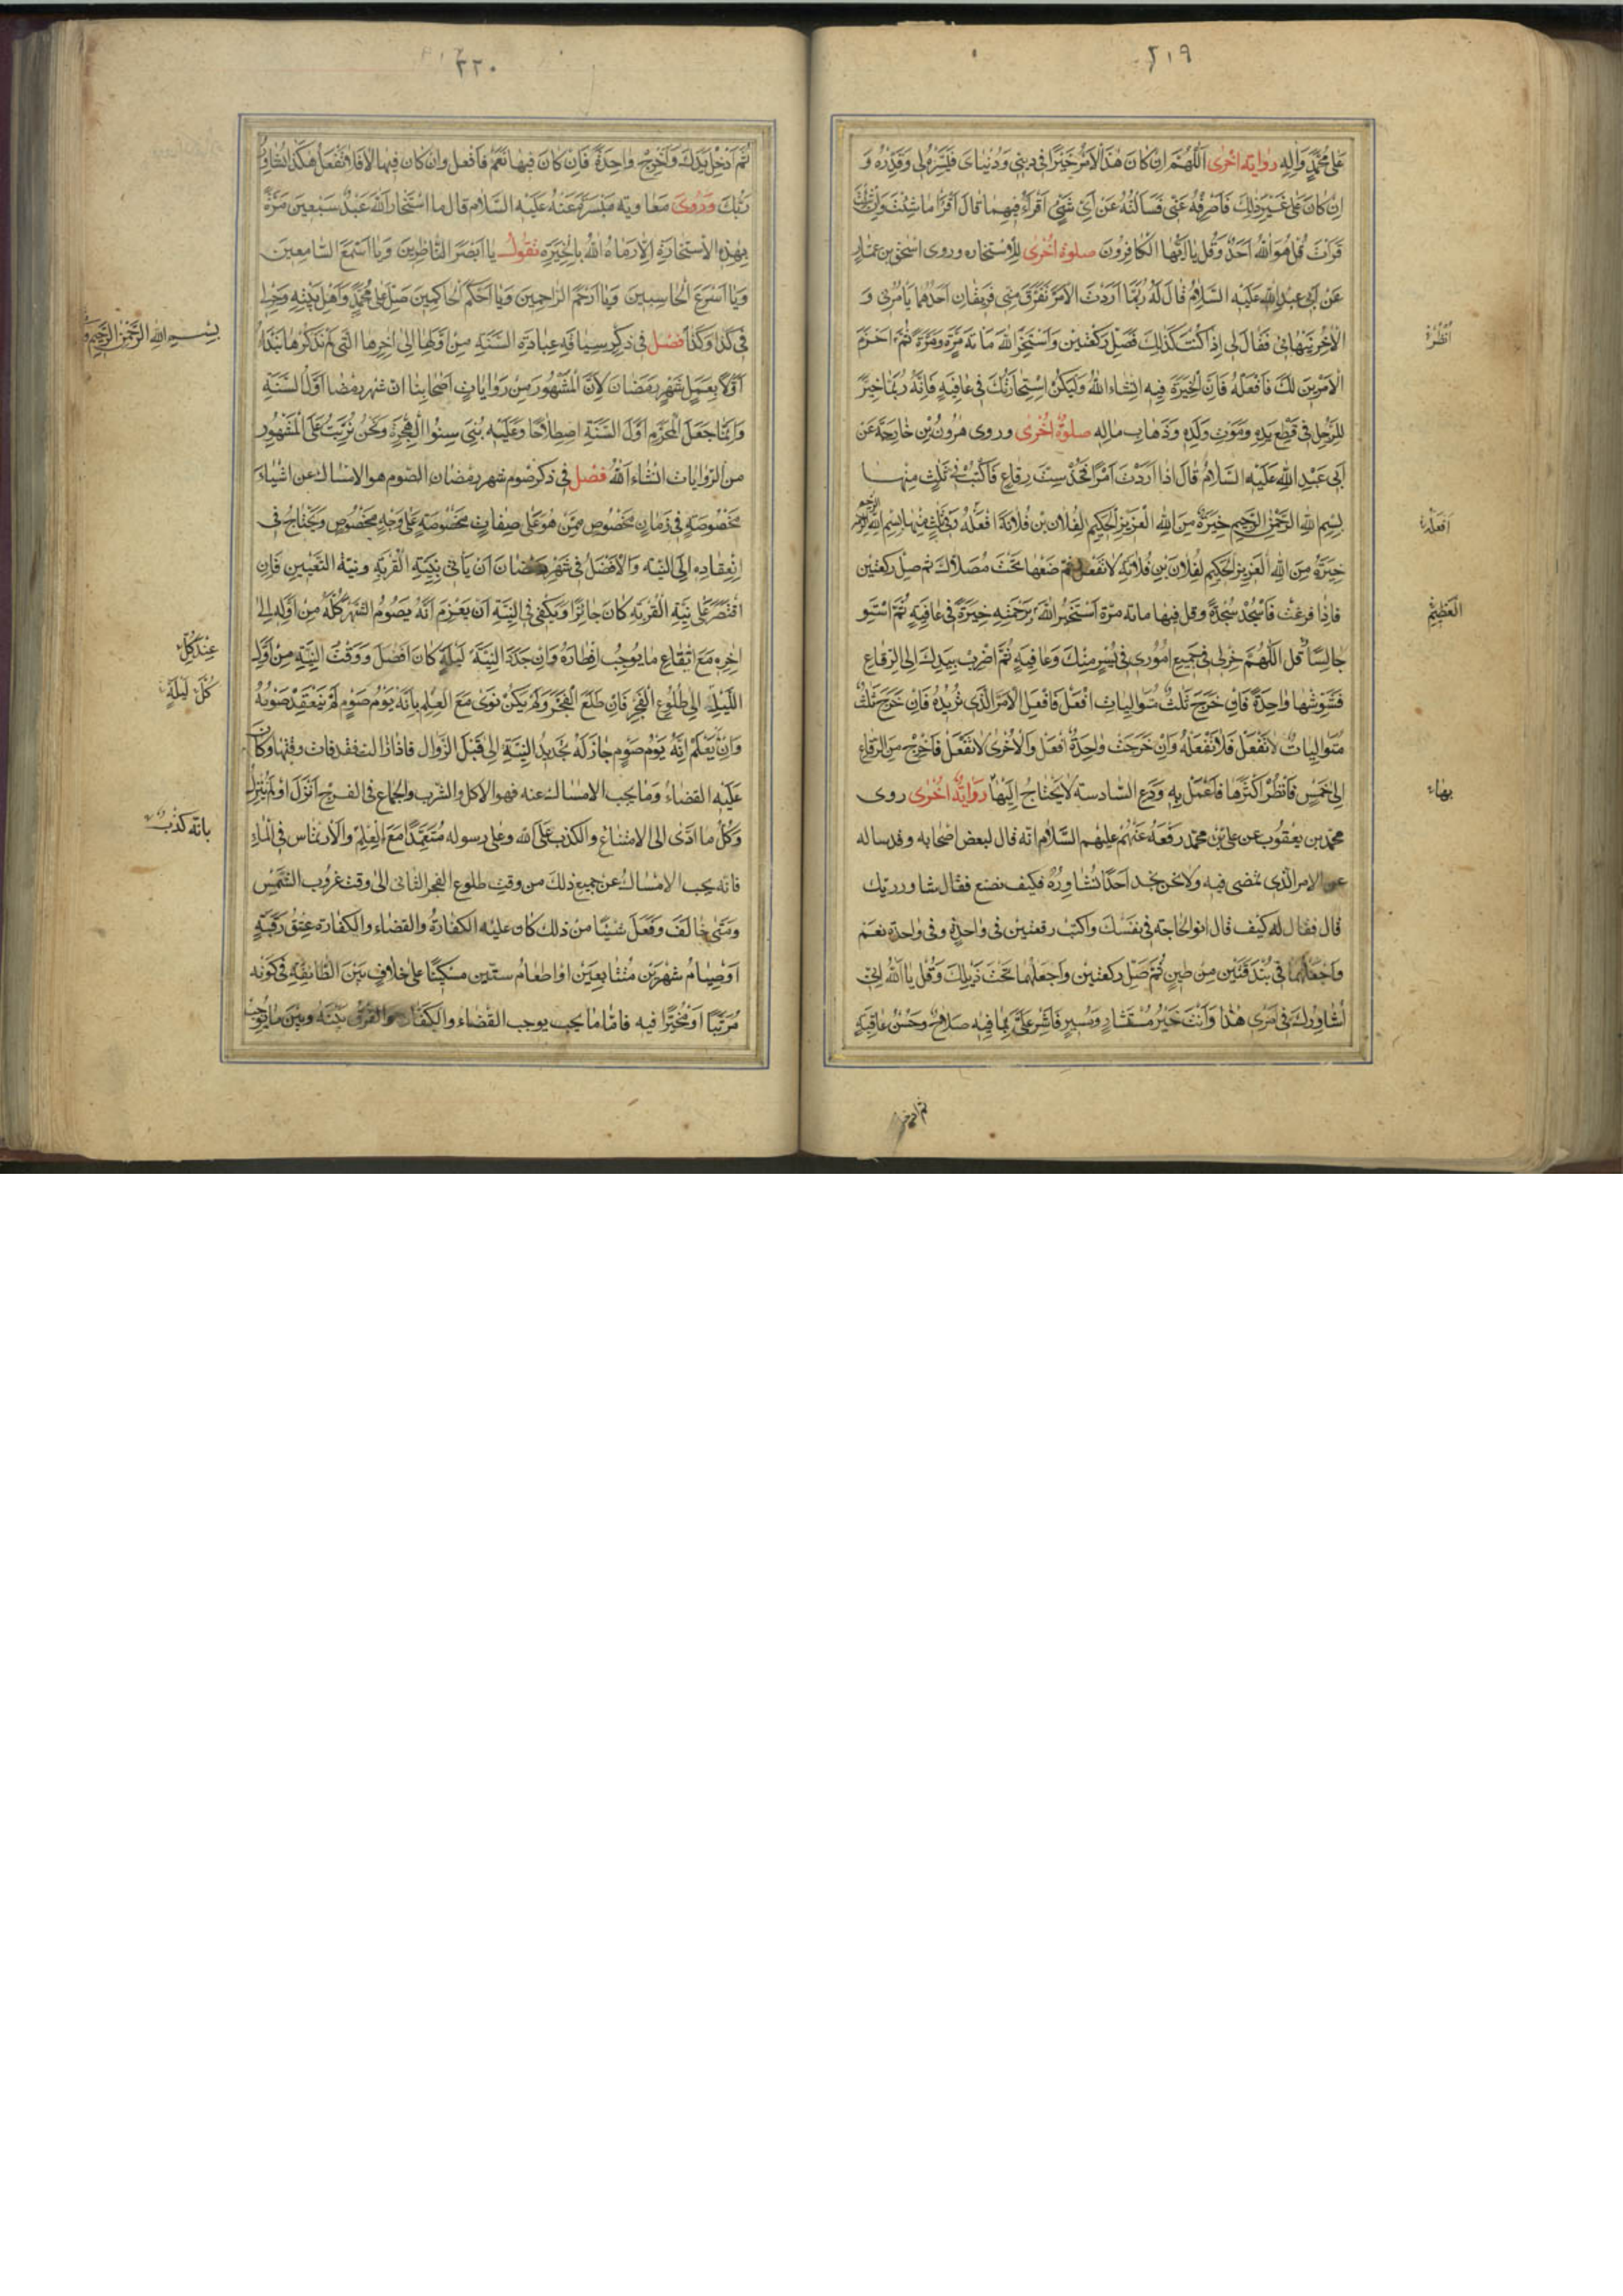 ٢١٩
على محمد واله رواية اخرى اللهم ان كان هذا الامر خيرا في ديني ودنياى فيسره لي وقدره و
ان كان على غير ذلك فاصرفه عني فسالته عن اي شئ اقرا فيهما قال اقرا ما شئت وان شئت
قرات قل هو الله احد وقل يا ايها الكافرون صلوة اخرى للاستخاره وروى اسحق بن عمار
عن ابي عبد الله عليه السلام قال قال له ربما اردت الامر تفرق مني فريقان احدهما يامرني و
الاخر ينهاني فقال لي اذا كنت كذلك فصل ركعتين واستخر الله مائة مرة ومرة ثم احزم
انظر
الامرين لك فافعله فان الخيرة فيه انشاء الله وليكن استخارتك في عافية فانه ربما خير
للرجل في قطع يده وموت ولده وذهاب ماله صلوة اخرى وروى هرون بن خارجة عن
ابي عبد الله عليه السلام قال اذا اردت امرا فخذ ست رقاع فاكتب في ثلث منها
بسم الله الرحمن الرحيم خيرة من الله العزيز الحكيم لفلان بن فلانة افعله وفي ثلث منها بسم الله الرحمن الرحيم
افعله
خيرة من الله العزيز الحكيم لفلان بن فلانة لا تفعل ثم ضعها تحت مصلاك ثم صل ركعتين
فاذا فرغت فاسجد سجدة وقل فيها مائة مرة استخير الله برحمته خيرة في عافية ثم استو
العظيم
جالسا قل اللهم خر لي في جميع اموري في يسر منك وعافية ثم اضرب بيدك الى الرقاع
فشوشها واحدة فان خرج ثلث متواليات افعل فافعل الامر الذي تريده فان خرج ثلث
متواليات لا تفعل فلا تفعله وان خرجت واحدة افعل والاخرى لا تفعل فاخرج من الرقاع
الى خمس فانظر اكثرها فاعمل به ودع السادسة لا يحتاج اليها رواية اخرى روى
بهاء
محمد بن يعقوب عن على بن محمد رفعه عنهم عليهم السلام انه قال لبعض اصحابه وقد ساله
عن الامر الذي تمضى فيه ولا نحن نجد احدا نشاوره فكيف نصنع فقال شاور ربك
قال فقال له كيف قال انو الحاجة في نفسك واكتب رقعتين في واحدة وفي واحدة نعم
واجعلهما في بندقتين من طين ثم صل ركعتين واجعلهما تحت ذيلك وقل يا الله اني
اشاورك في امري هذا وانت خير مستشار ومشير فاشر على بما فيه صلاح وحسن عاقبة
ثم ادخل
٢٢٠
ثم ادخل يدك واخرج واحدة فان كان فيها نعم فافعل وان كان فيها لا فلا تفعل هكذا تشاور
ربك وروى معاوية ميسرة عنه عليه السلام قال ما استخار الله عبد سبعين مرة
بهذه الاستخارة الا رماه الله بالخيرة تقول يا ابصر الناظرين ويا اسمع السامعين
ويا اسرع الحاسبين ويا ارحم الراحمين ويا احكم الحاكمين صل على محمد واهل بيته وخر لي
في كذا وكذا فصل في ذكر سياقة عبادة السنة من اولها الى اخرها التي لم نذكرها نبدا
بسم الله الرحمن الرحيم
اولا بعمل شهر رمضان لان المشهور من روايات اصحابنا ان شهر رمضا اول السنة
وانما جعل المحرم اول السنة اصطلاحا وعليه بني سنوا الهجرة ونحن نرتب على المشهور
من الروايات انشاء الله فصل في ذكر صوم شهر رمضان الصوم هو الامساك عن اشياء
مخصوصة في زمان مخصوص ممن هو على صفات مخصوصة على وجه مخصوص ويحتاج في
انعقاده الى النية والافضل في شهر رمضان ان ياتي بنية القربة ونية التعيين فان
اقتصر على نية القربة كان جائزا ويكفي في النية ان يعزم انه يصوم الشهر كله من اوله الى
اخره مع اتقاع ما يوجب افطاره وان جدد النية ليلة كان افضل ووقت النية من اول
عند كل
الليل الى طلوع الفجر فان طلع الفجر ولم يكن نوى مع العلم بانه يوم صوم لم ينعقد صومه
كل ليلة
وان يعلم انه يوم صوم جاز له تجديد النية الى قبل الزوال فاذا زالت فقد فات وقتها وكان
عليه القضاء وما يجب الامساك عنه فهو الاكل والشرب والجماع في الفرج انزل او لم ينزل
وكل ما ادى الى الامتناع والكذب على الله وعلى رسوله متعمدا مع العلم والارتماس في الماء
بانه كذب
فانه يجب الامساك عن جميع ذلك من وقت طلوع الفجر الثاني الى وقت غروب الشمس
ومتى خالف وفعل شيئا من ذلك كان عليه الكفارة والقضاء والكفارة عتق رقبة
اوصيام شهرين متتابعين او اطعام ستين مسكينا على خلاف بين الطائفة في كونه
مرتبا او مخيرا فيه فاما ما يجب يوجب القضاء والكفارة والفرق بينه وبين ما يوجب